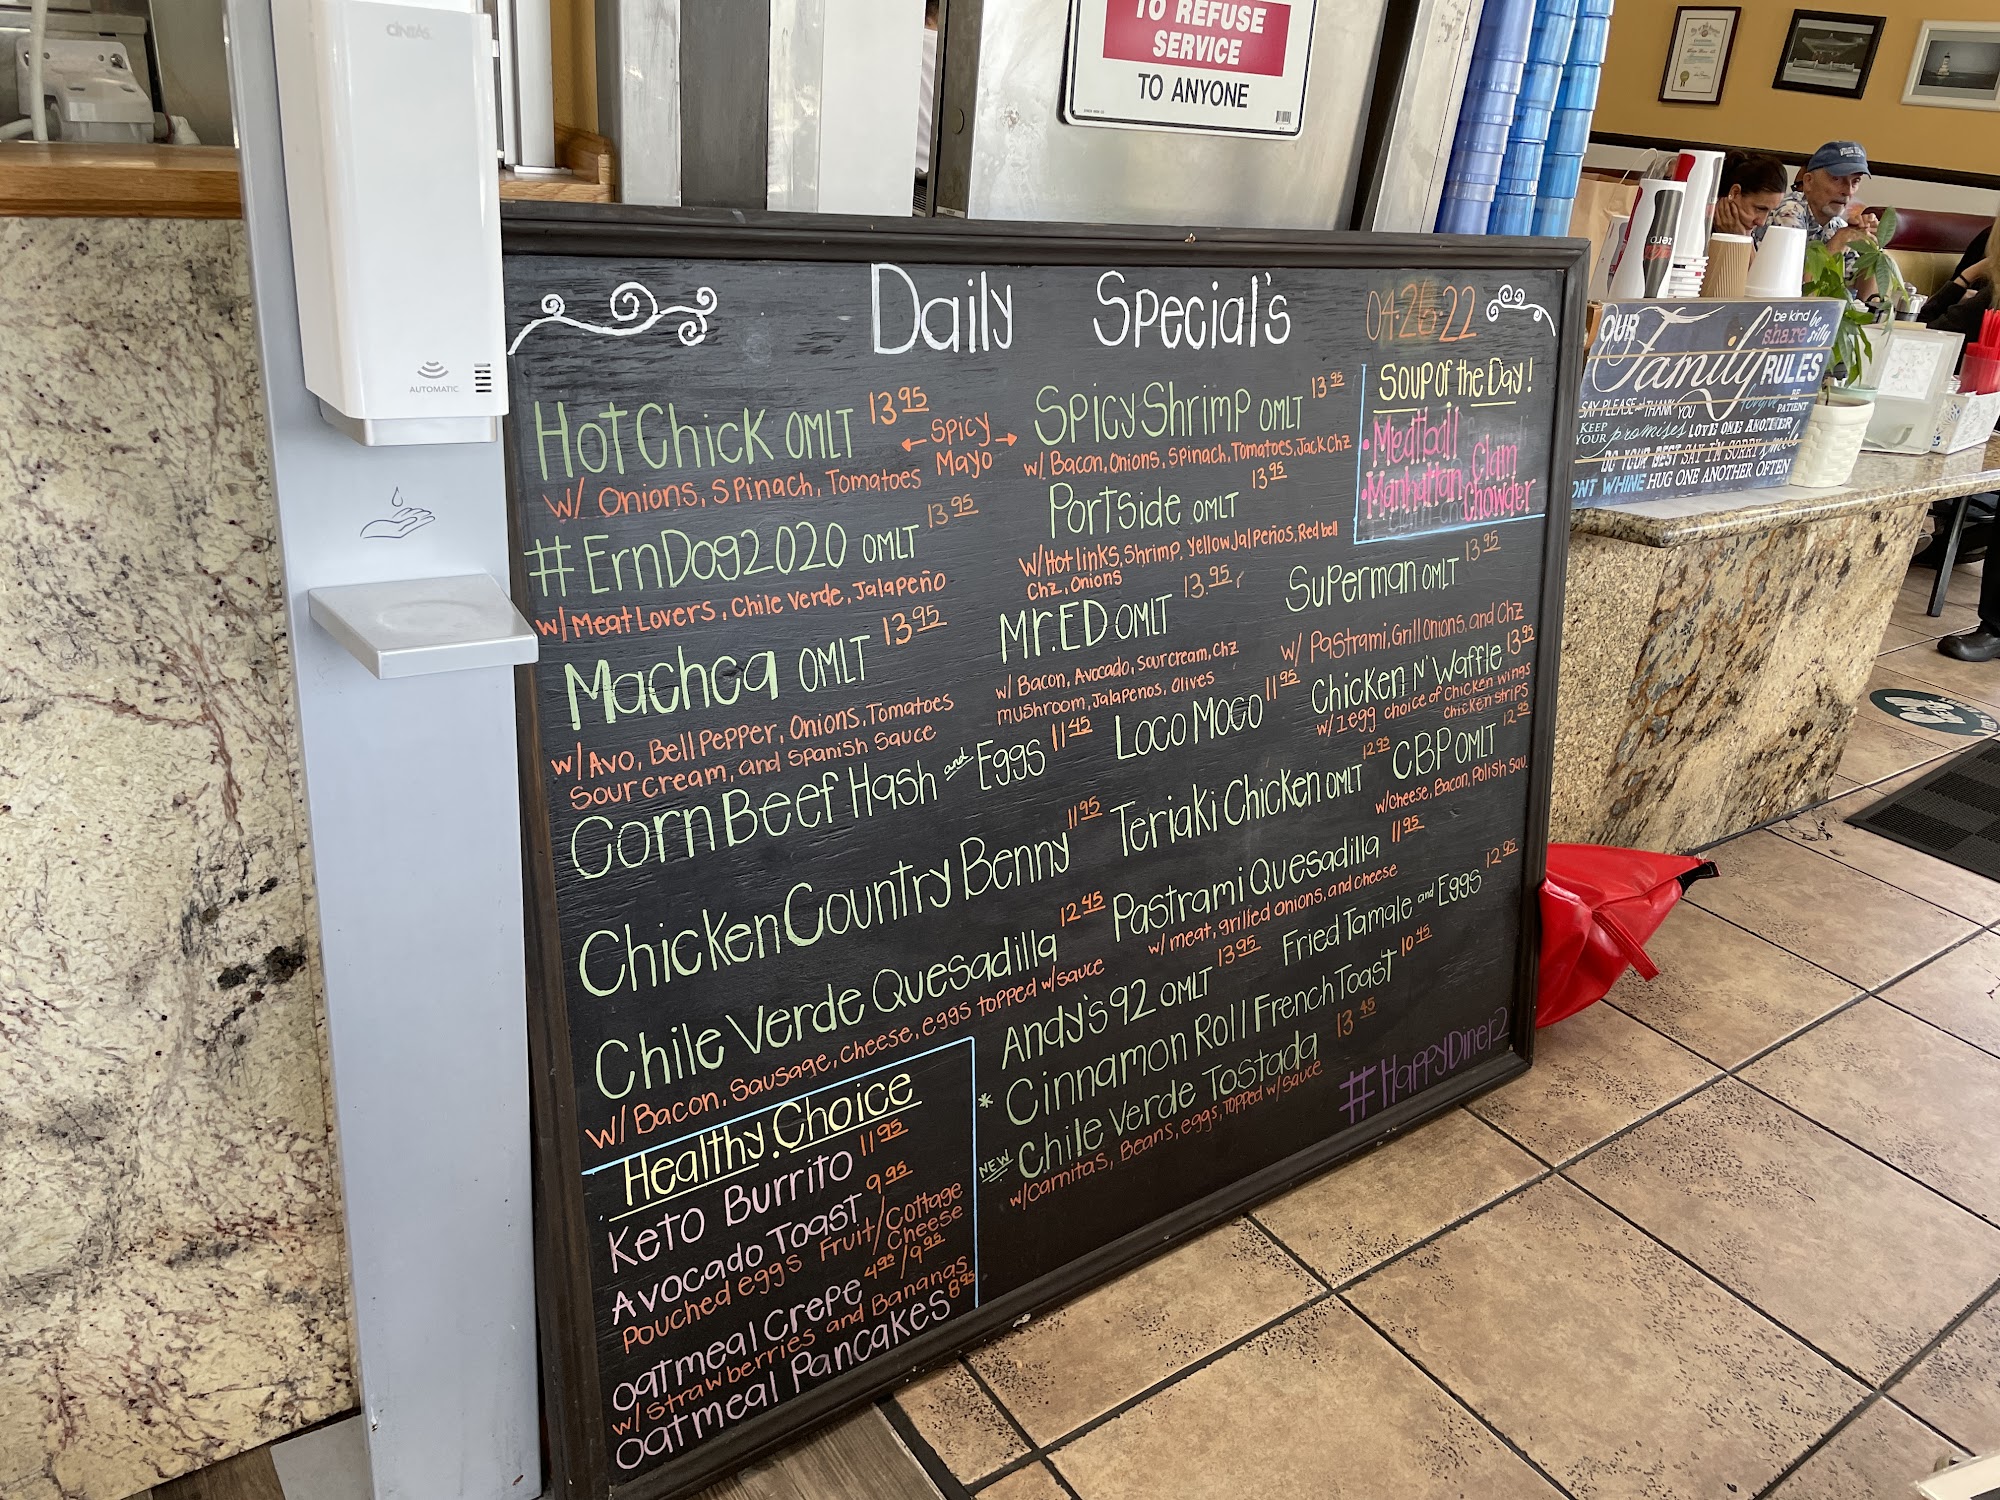 CINTAS
AUTOMATIC
TO REFUSE
SERVICE
TO ANYONE
Daily Special's
04-26-22
Hot Chick OMLT 13 95
← Spicy →
Mayo
w/ Onions, Spinach, Tomatoes
#ErnDog2020 OMLT 13 95
w/ Meat Lovers, Chile Verde, Jalapeño
Machca OMLT 13 95
w/ Avo, Bell Pepper, Onions, Tomatoes
Sour Cream, and Spanish Sauce
Corn Beef Hash and Eggs 11 45
Chicken Country Benny 11 95
Chile Verde Quesadilla 12 45
w/ Bacon, Sausage, Cheese, eggs topped w/ sauce
Healthy Choice
Keto Burrito 11 95
Avocado Toast 9 95
Pouched eggs Fruit/Cottage
Cheese
Oatmeal Crepe 4 95 / 9 95
w/ Strawberries and Bananas
Oatmeal Pancakes 8 95
Spicy Shrimp OMLT 13 95
w/ Bacon, Onions, Spinach, Tomatoes, Jack Chz
Portside OMLT 13 95
w/ Hot links, Shrimp, Yellow Jalpeños, Red bell
Chz, Onions
Mr. ED OMLT 13.95
w/ Bacon, Avocado, Sour cream, Chz
mushroom, Jalapenos, Olives
Loco Moco 11 95
Teriaki Chicken OMLT 12 95
Pastrami Quesadilla 11 95
w/ meat, grilled onions, and cheese
Andy's 92 OMLT 13 95
* Cinnamon Roll French Toast 10 45
NEW Chile Verde Tostada 13 45
w/ Carnitas, Beans, eggs, Topped w/ sauce
Soup of the Day!
• Meatball
• Manhattan Clam
Chowder
Superman OMLT 13 95
w/ Pastrami, Grill Onions, and Chz
Chicken N' Waffle 13 95
w/ 1 egg choice of chicken wings
chicken strips
CBP OMLT 12 95
w/ Cheese, Bacon, Polish Sau.
Fried Tamale and Eggs 12 95
#HappyDiner2
OUR Family RULES
be kind be
share silly
SAY PLEASE & THANK YOU forgive BE
PATIENT
KEEP
YOUR promises LOVE ONE ANOTHER
DO YOUR BEST SAY I'M SORRY smile
DONT WHINE HUG ONE ANOTHER OFTEN
zero